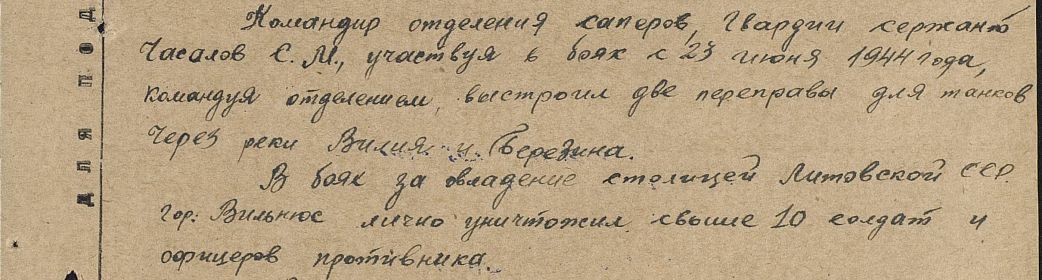 Командир отделения саперов, Гвардии сержант
Часалов С. М., участвуя в боях с 23 июня 1944 года,
командуя отделением, выстроил две переправы для танков
через реки Вилия и Березина.
В боях за овладение столицей Литовской ССР.
гор. Вильнюс лично уничтожил свыше 10 солдат и
офицеров противника.
для под